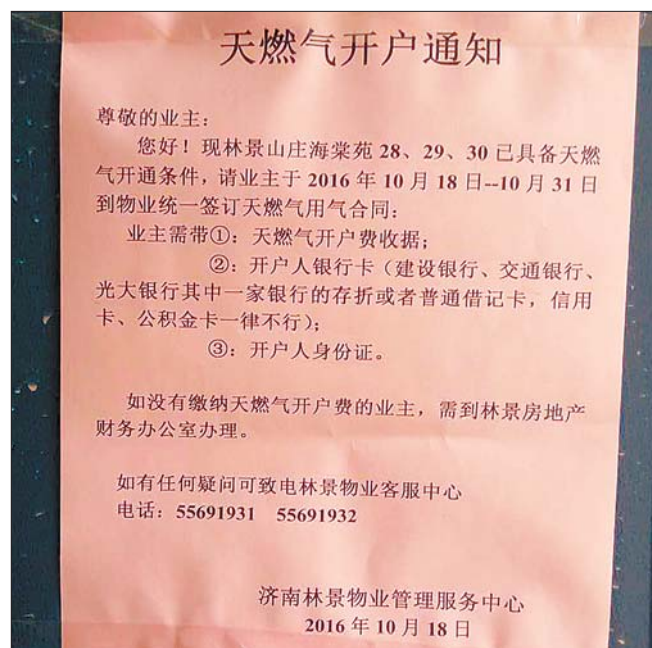 天燃气开户通知
尊敬的业主：
您好！现林景山庄海棠苑 28、29、30 已具备天燃
气开通条件，请业主于 2016 年 10 月 18 日--10 月 31 日
到物业统一签订天燃气用气合同：
业主需带①：天燃气开户费收据；
②：开户人银行卡（建设银行、交通银行、
光大银行其中一家银行的存折或者普通借记卡，信用
卡、公积金卡一律不行）；
③：开户人身份证。
如没有缴纳天燃气开户费的业主，需到林景房地产
财务办公室办理。
如有任何疑问可致电林景物业客服中心
电话：55691931 55691932
济南林景物业管理服务中心
2016 年 10 月 18 日